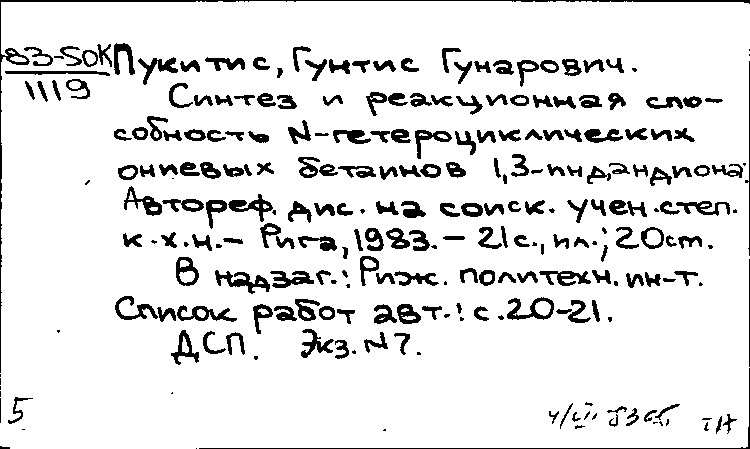 83-5ОК
1119
Пукитис, Гунтис Гунарович.
Синтез и реакционная спо-
собность N-гетероциклических
ониевых бетаинов 1,3-индандиона.
Автореф. дис. на соиск. учен. степ.
к.х.н. - Рига, 1983. - 21с., ил.; 20см.
В надзаг.: Риж. политехн. ин-т.
Список работ авт.: с.20-21.
ДСП. Экз. N7.
5